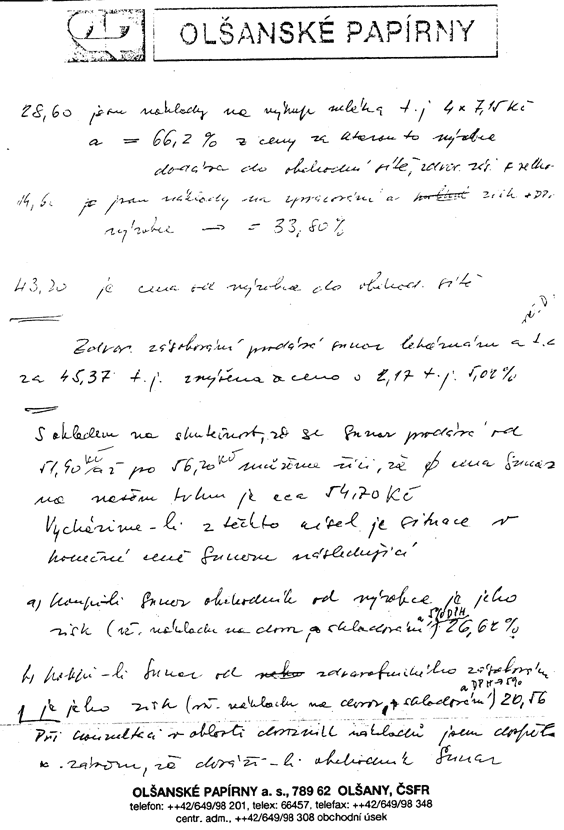 OLŠANSKÉ PAPÍRNY
28,60 jsou náklady na výkup mléka t.j 4 x 7,15 Kč
a = 66,2 % z ceny za kterou to výrobce
dodává do obchodní sítě, zdrav. zás.
14,6 jsou náklady na zpracování a zisk + DPH
výrobce → = 33,80 %
43,20 je cena od výrobce do obchod. sítě
vč. D.
Zdrav. zásobování prodává sunar lékárnám a t.c
za 45,37 t.j. zvýšena cena o 2,17 t.j. 5,02 %
S ohledem na skutečnost, že se Sunar prodává od
51,90 Kč až po 56,20 Kč můžeme říci, že ϕ cena Sunar
na našem trhu je cca 54,70 Kč
Vycházíme-li z těchto čísel je situace v
konečné ceně Sunaru následující
a) koupí-li Sunar obchodník od výrobce je jeho
a 5% DPH
zisk (vč. nákladu na dovoz, skladování) 26,62 %
b) koupí-li Sunar od zdravotnického zásobování
a DPH 5%
je jeho zisk (vč. nákladu na dovoz, skladování) 20,56
Při konzultaci v oblasti dovozních nákladů jsem dospěla
k závěru, že dováží-li obchodník Sunar
OLŠANSKÉ PAPÍRNY a. s., 789 62 OLŠANY, ČSFR
telefon: ++42/649/98 201, telex: 66457, telefax: ++42/649/98 348
centr. adm., ++42/649/98 308 obchodní úsek